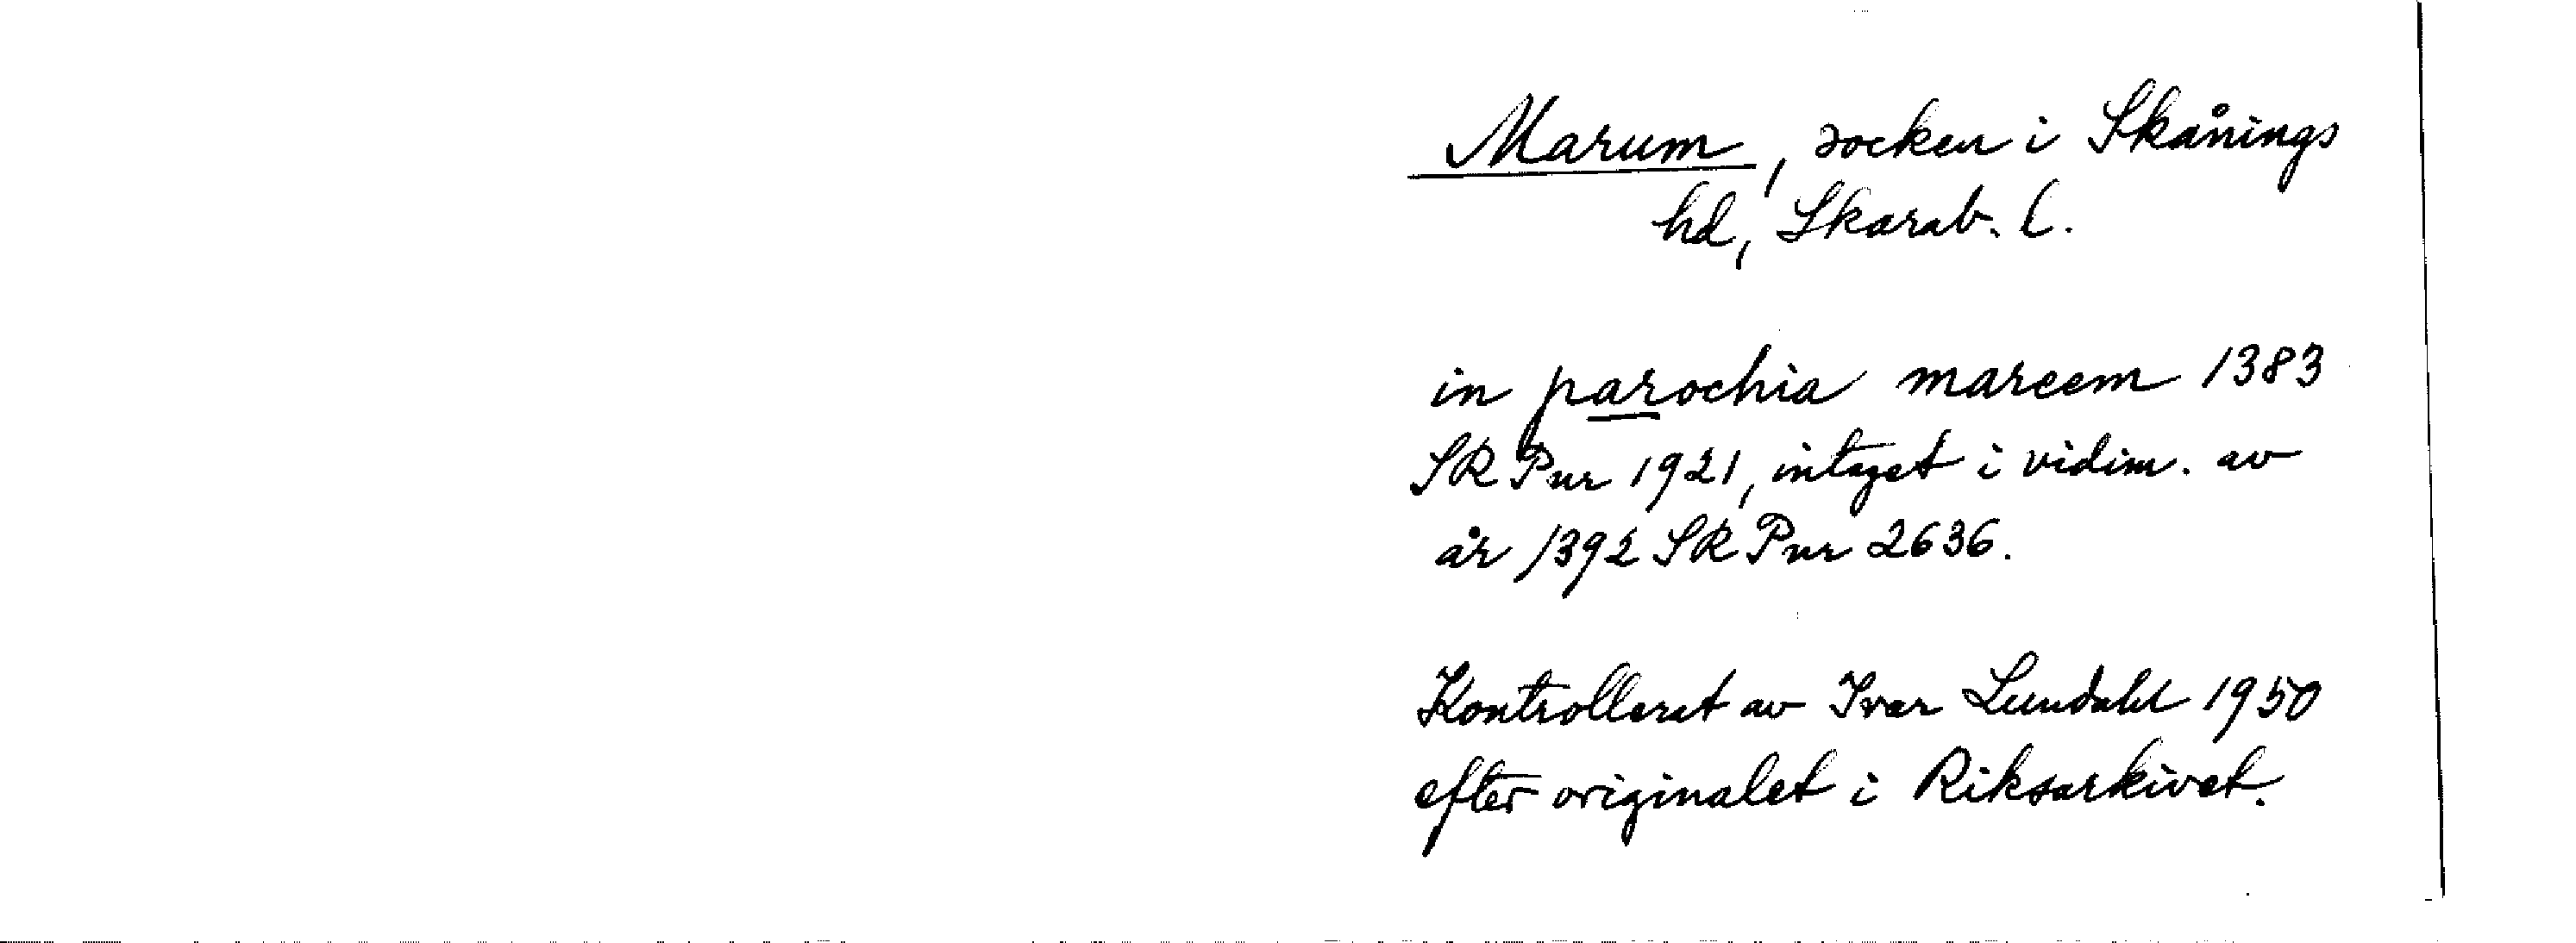 Marum, socken i Skånings
hd, Skarab. l.
in parochia mareem 1383
SR Pnr 1921, intaget i vidim. av
år 1392 SR Pnr 2636.
Kontrollerat av Ivar Lundahl 1950
efter originalet i Riksarkivet.